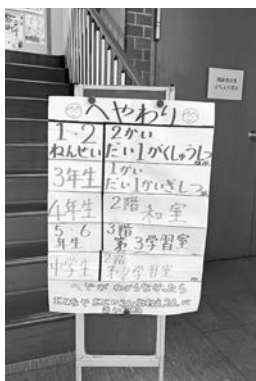 へやわり
1・2ねんせい
2かい
だい1がくしゅうしつ
3年生
1かい
だい1かいぎしつ
4年生
2階
和室
5・6年生
3階
第3学習室
中学生
2階
学習室
へやが わからなかったら